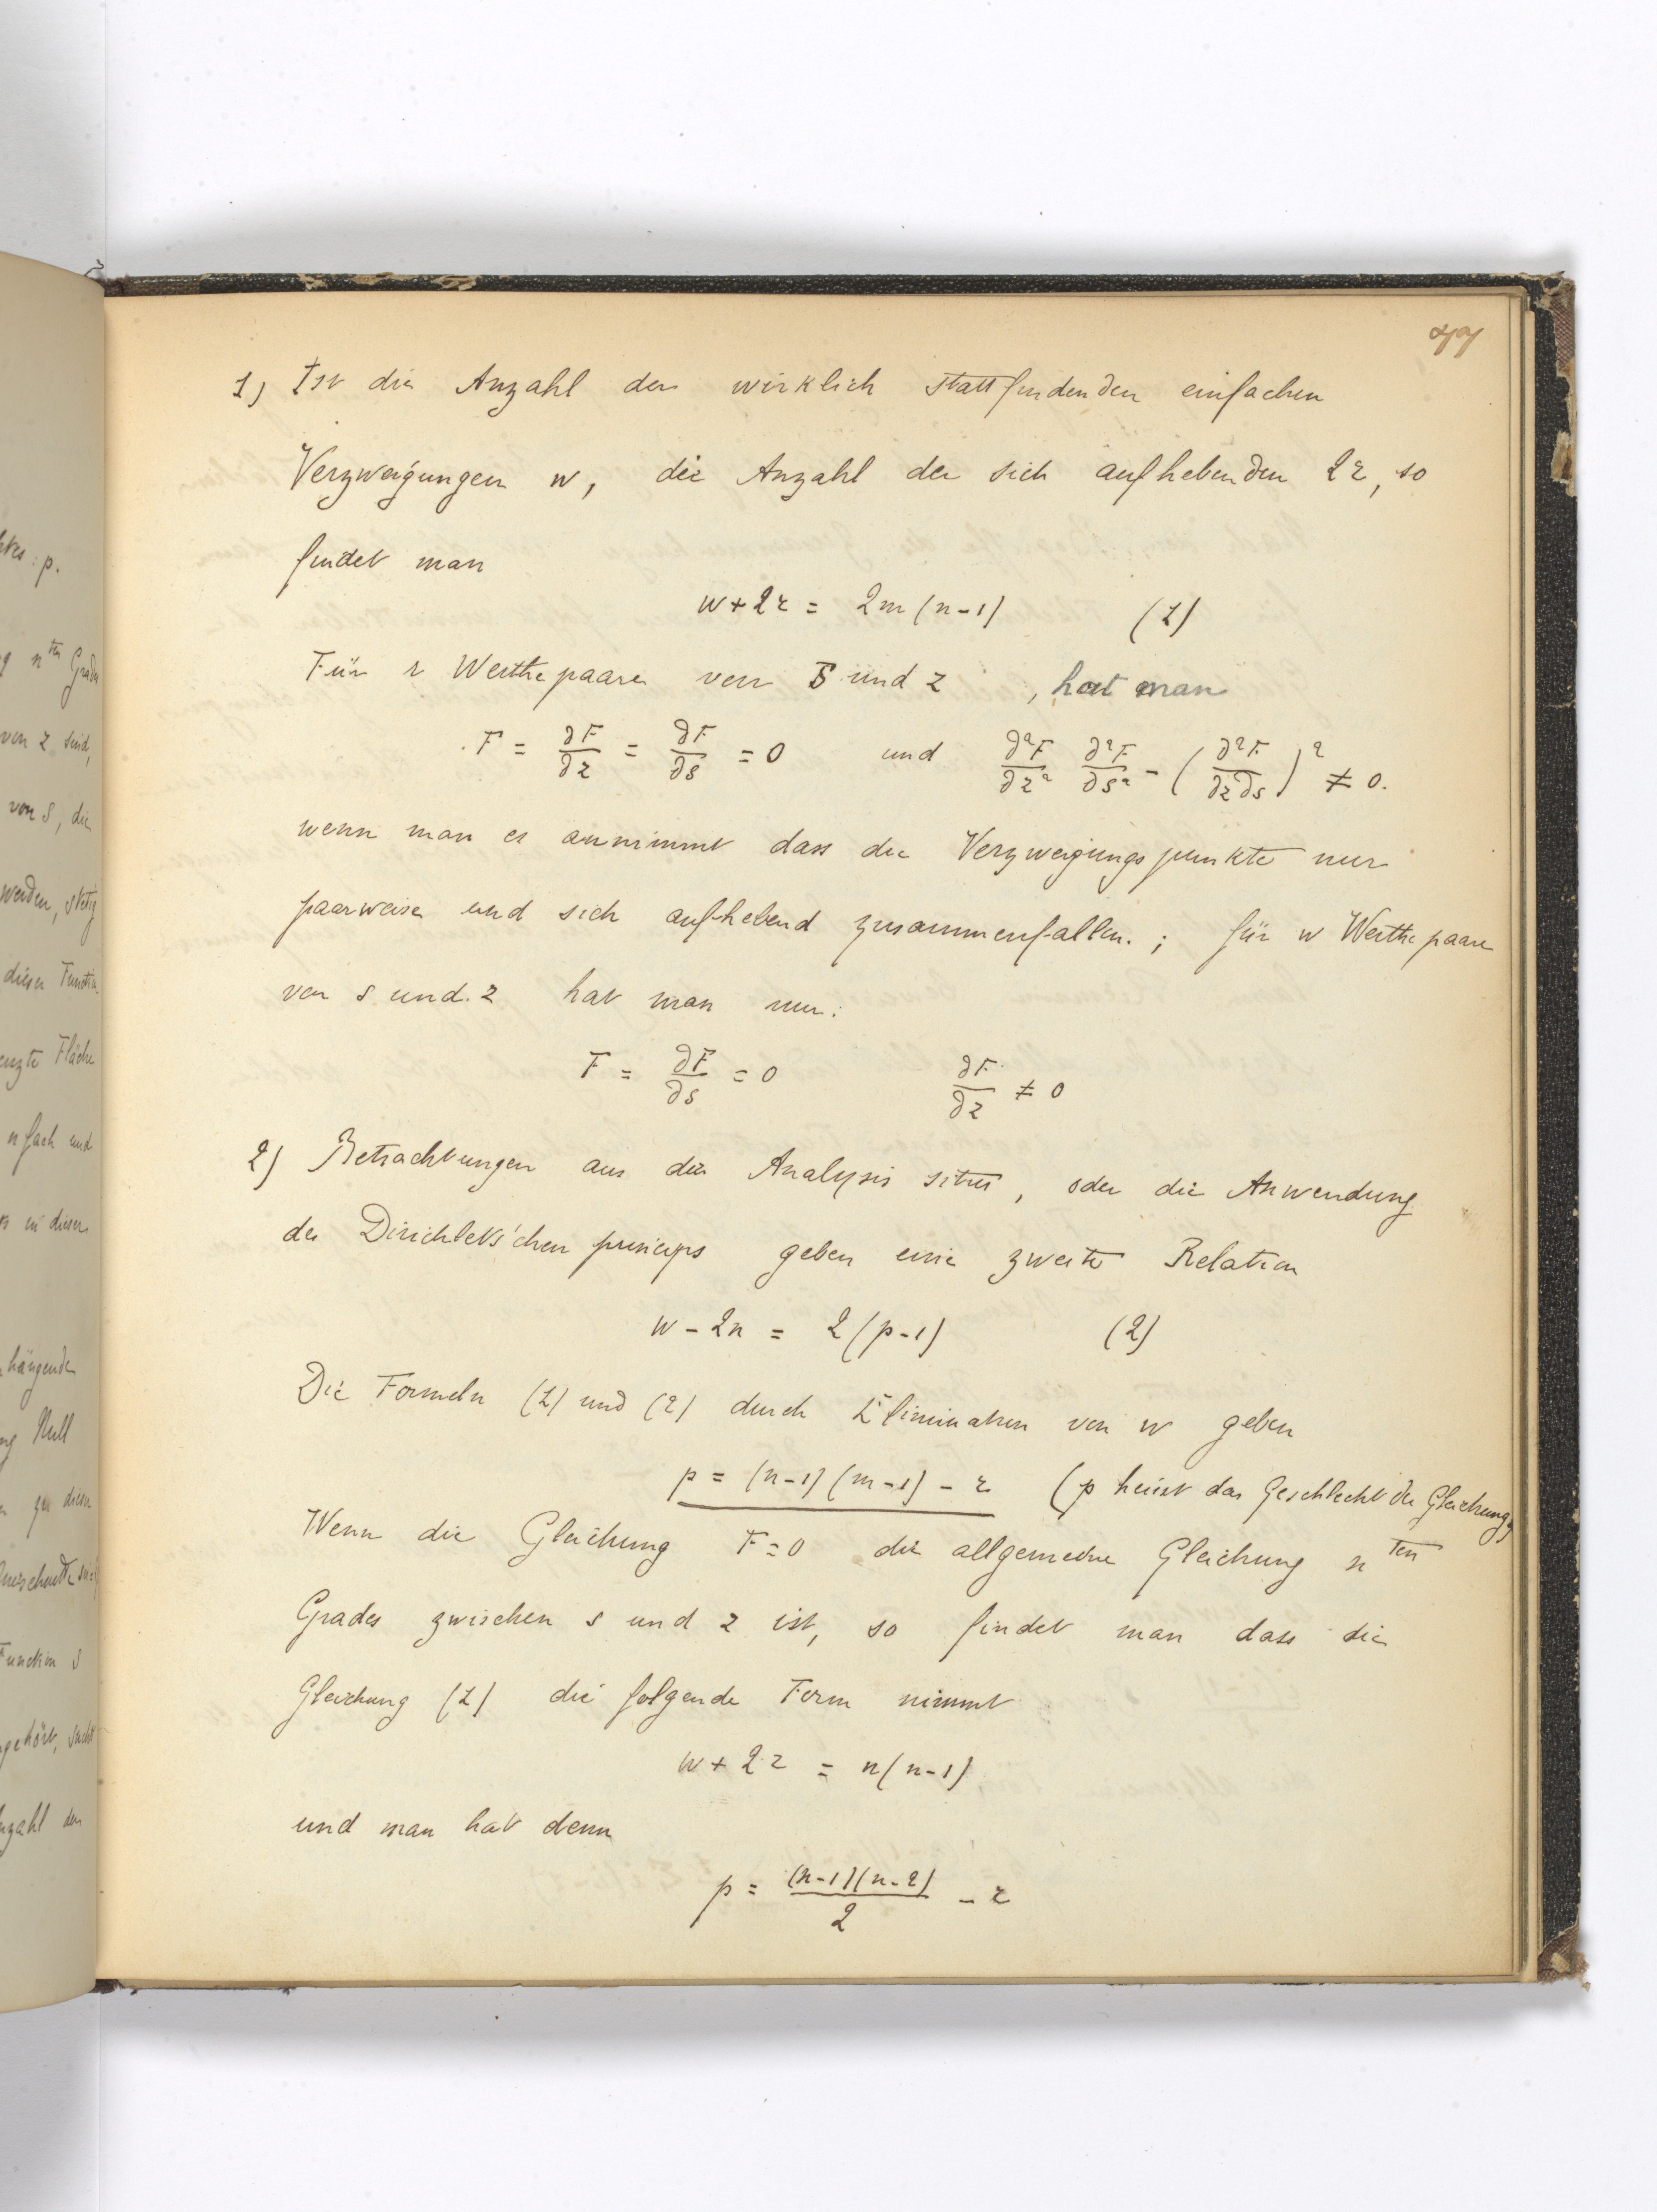 1) Ist die Anzahl der wirklich stattfindenden einfachen
Verzweigungen w, die Anzahl der sich aufhebenden 2r, so
findet man
w + 2r = 2m (n-1) (1)
Für r Werthepaare von S und z, hat man
F = ∂F/∂z = ∂F/∂s = 0 und ∂²F/∂z² ∂²F/∂s² - (∂²F/∂z∂s)² ≠ 0.
wenn man es annimmt dass die Verzweigungspunkte nur
paarweise und sich aufhebend zusammenfallen. ; für w Werthepaare
von s und z hat man nur:
F = ∂F/∂s = 0 ∂F/∂z ≠ 0
2) Betrachtungen aus der Analysis situs, oder die Anwendung
des Dirichlets'chen princips geben eine zweite Relation
w - 2n = 2(p-1) (2)
Die Formeln (1) und (2) durch Elimination von w geben
p = (n-1)(m-1) - r (p heisst das Geschlecht der Gleichung)
Wenn die Gleichung F=0 die allgemeine Gleichung n ten
Grades zwischen s und z ist, so findet man dass die
Gleichung (1) die folgende Form nimmt
w + 2r = n(n-1)
und man hat denn
p = (n-1)(n-2)/2 - r
von z sind,
von s, die
werden, stetig
dieser Function
n fach und
in dieser